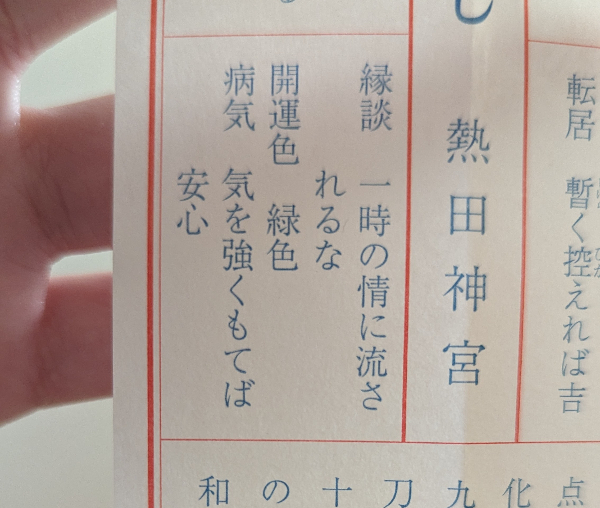 転居　暫く控えれば吉
し　熱田神宮
縁談　一時の情に流さ
れるな
開運色　緑色
病気　気を強くもてば
安心
点化九刀十の和